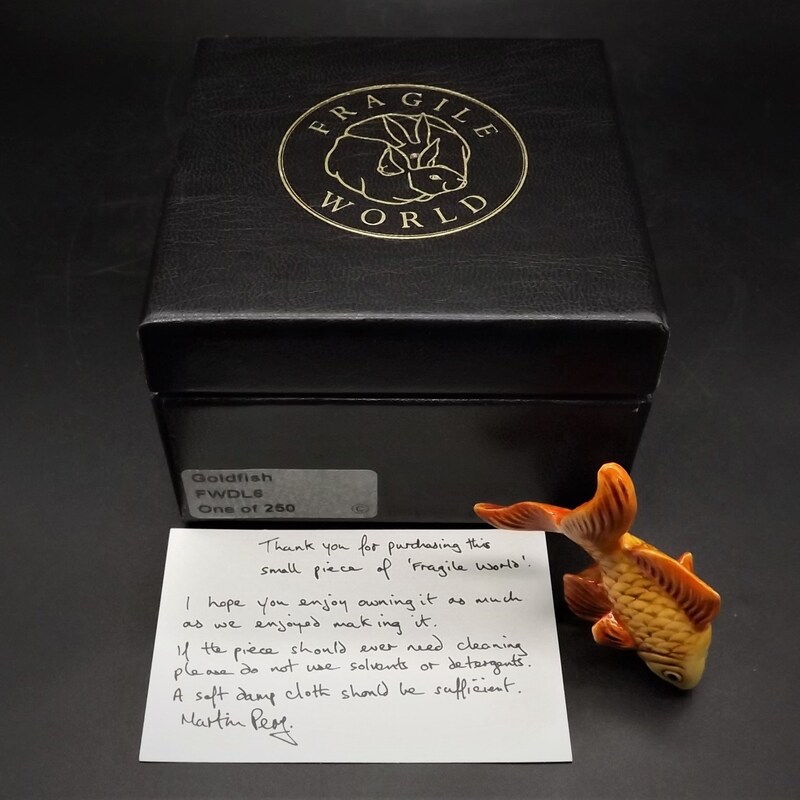 FRAGILE
WORLD
Goldfish
FWDL6
One of 250 ©
Thank you for purchasing this
small piece of 'Fragile World'.
I hope you enjoy owning it as much
as we enjoyed making it.
If the piece should ever need cleaning
please do not use solvents or detergents.
A soft damp cloth should be sufficient.
Martin Perry.